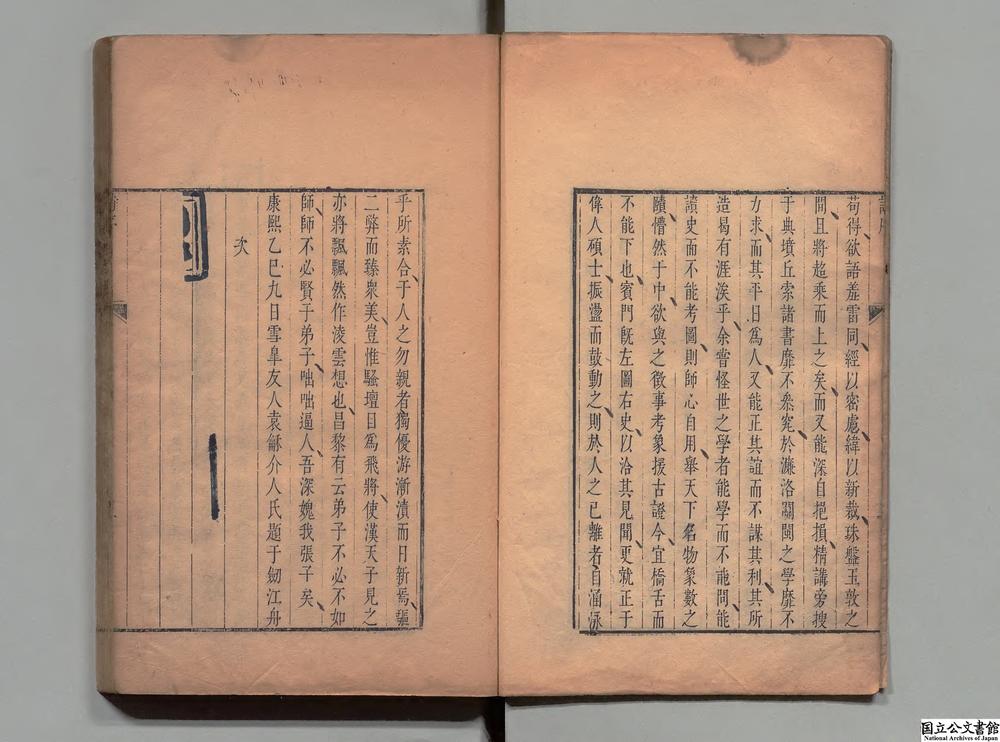 苟得欲語羞雷同經以密慮緯以新裁珠盤玉敦之
間且將超乘而上之矣而又能深自挹損精講旁搜
于典墳丘索諸書靡不系究於濂洛關閩之學靡不
力求而其平日為人又能正其誼而不謀其利其所
造曷有涯涘乎余嘗怪世之學者能學而不能問能
讀史而不能考圖則師心自用舉天下名物象數之
賾懵然于中欲與之徵事考象援古證今宜橋舌而
不能下也賓門既左圖右史以洽其見聞更就正于
偉人碩士振盪而鼓動之則於人之已離者自涵泳
乎所素合于人之勿親者獨優游漸漬而日新焉驅
二弊而臻衆美豈惟騷壇目為飛將使漢天子見之
亦將飄飄然作淩雲想也昌黎有云弟子不必不如
師師不必賢于弟子咄咄逼人吾深媿我張子矣
康熙乙巳九日雪臯友人袁龢介人氏題于劒江舟
次
国立公文書館
National Archives of Japan